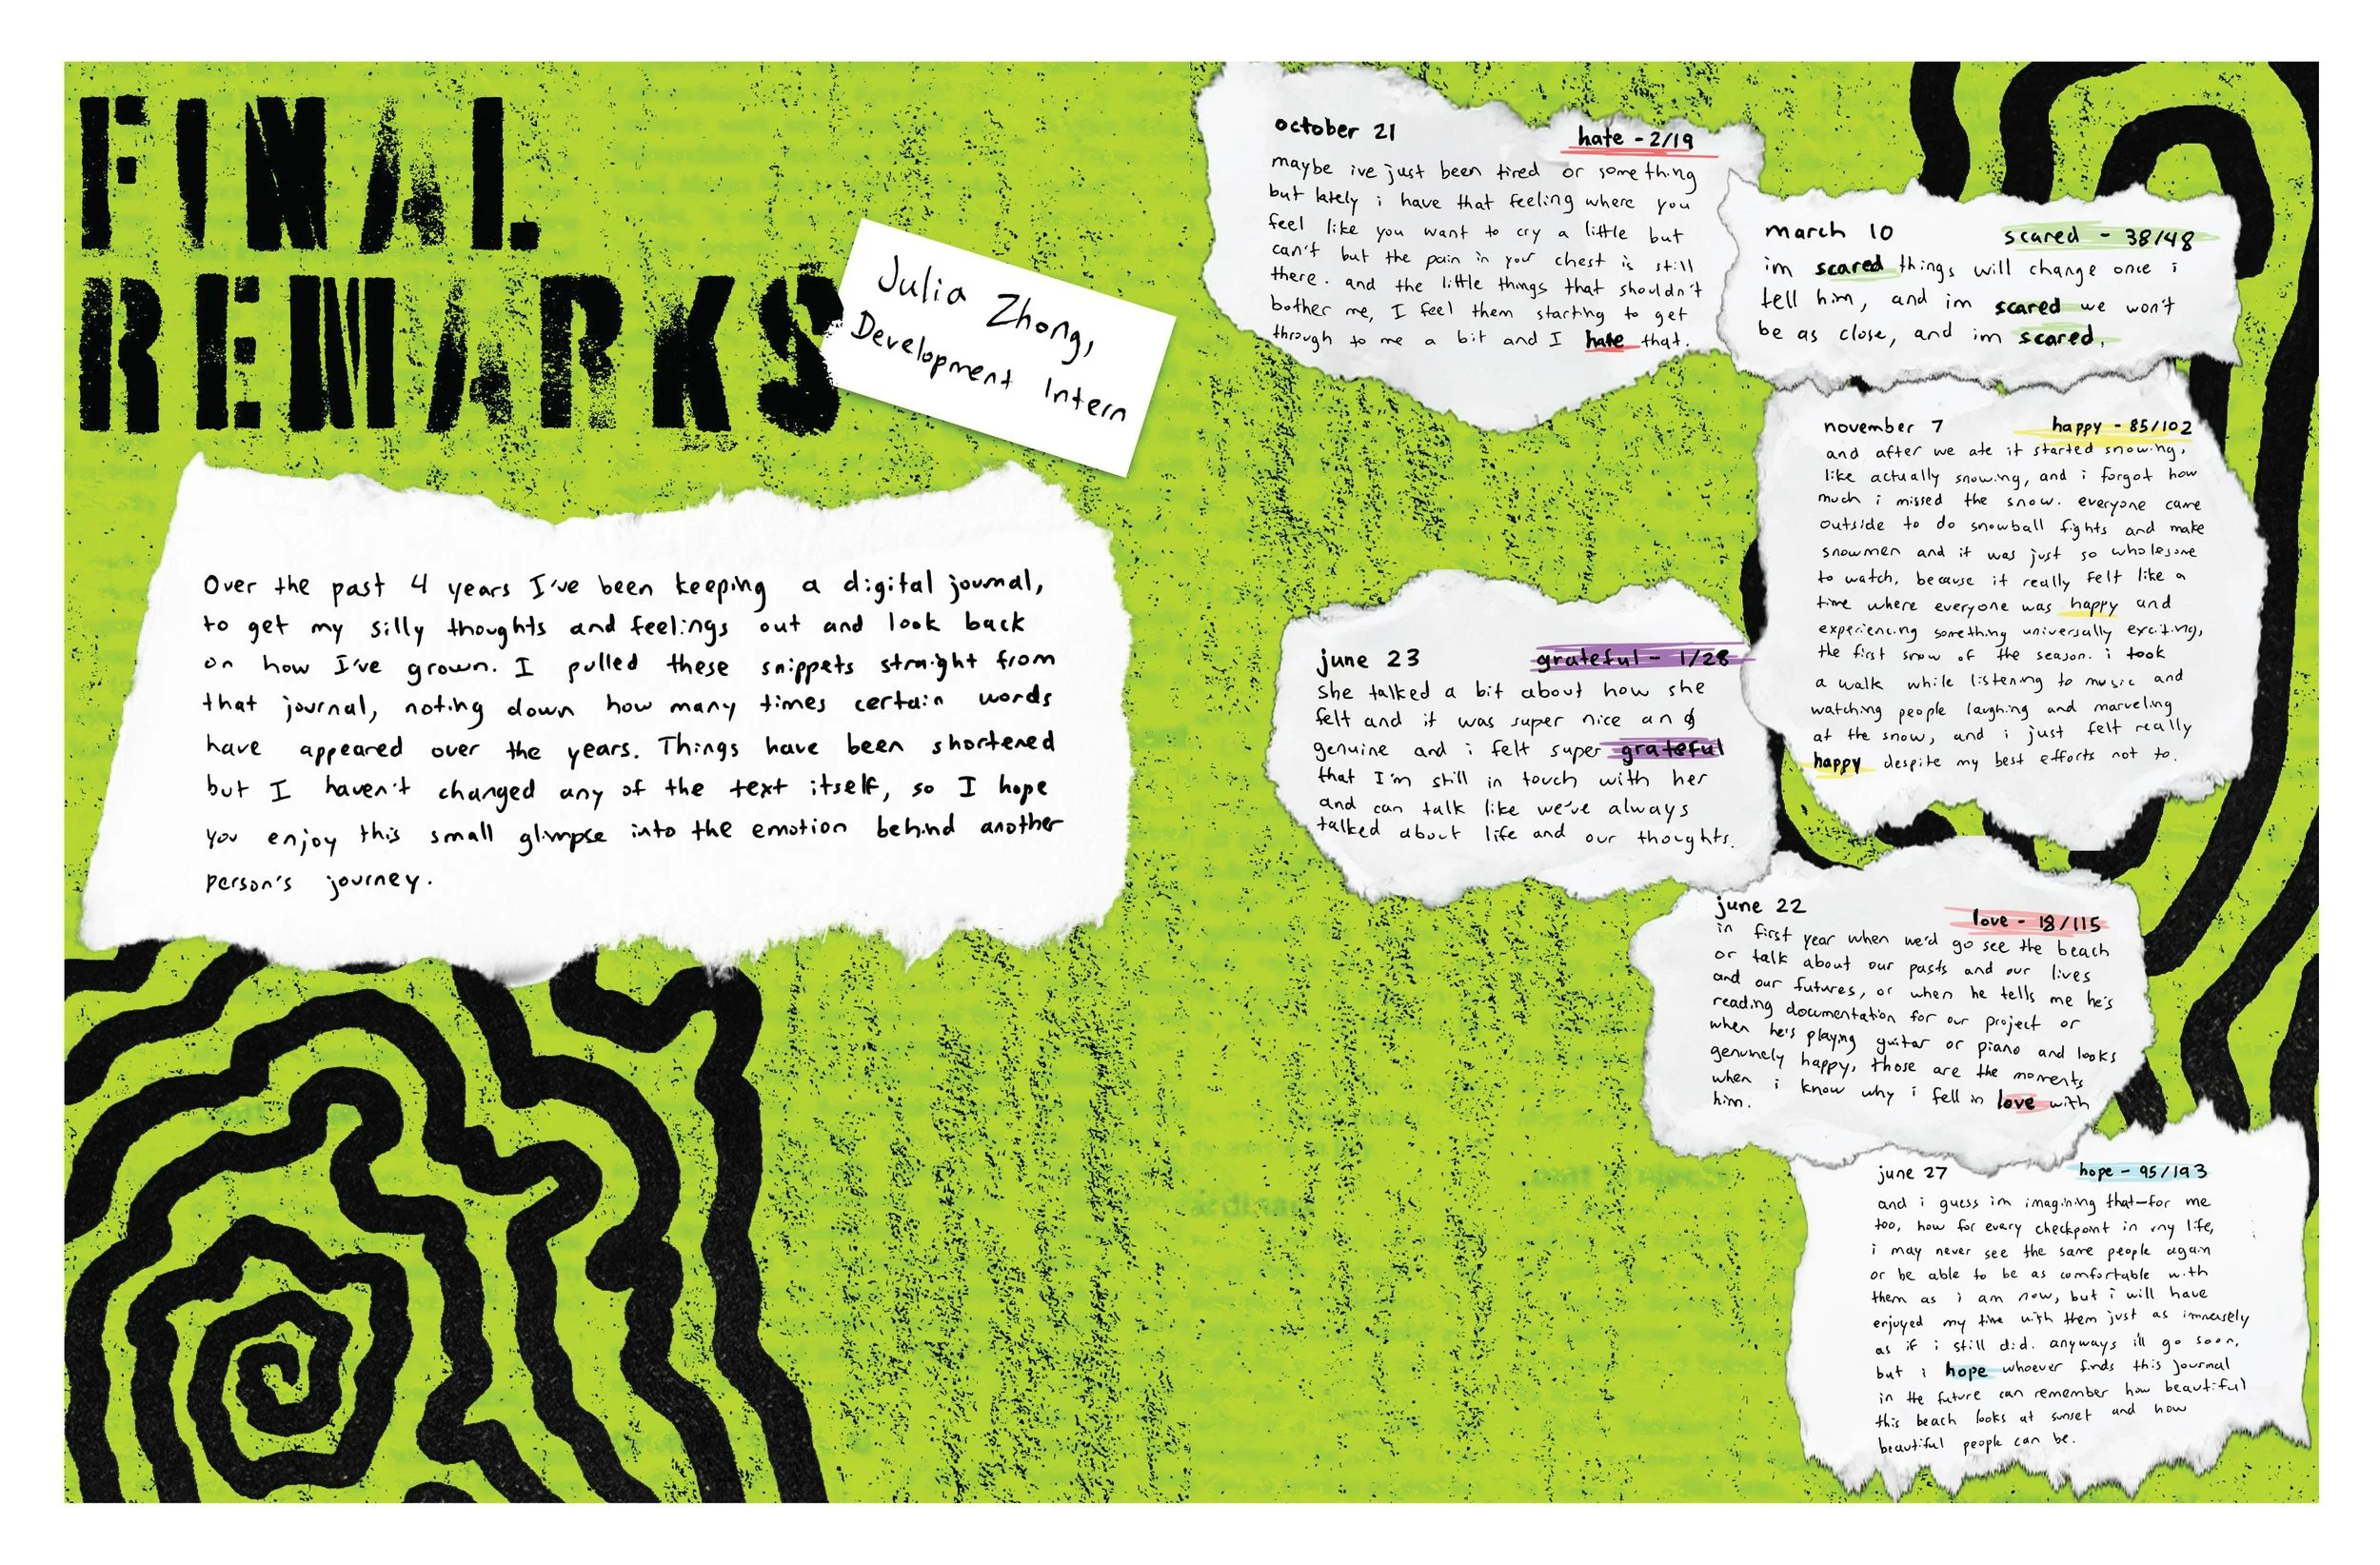 FINAL
REMARKS
Julia Zhong,
Development Intern
Over the past 4 years I've been keeping a digital journal,
to get my silly thoughts and feelings out and look back
on how I've grown. I pulled these snippets straight from
that journal, noting down how many times certain words
have appeared over the years. Things have been shortened
but I haven't changed any of the text itself, so I hope
you enjoy this small glimpse into the emotion behind another
person's journey.
october 21
hate - 2/19
maybe ive just been tired or something
but lately i have that feeling where you
feel like you want to cry a little but
can't but the pain in your chest is still
there. and the little things that shouldn't
bother me, I feel them starting to get
through to me a bit and I hate that.
march 10
scared - 38/48
im scared things will change once i
tell him, and im scared we won't
be as close, and im scared.
november 7
happy - 85/102
and after we ate it started snowing,
like actually snowing, and i forgot how
much i missed the snow. everyone came
outside to do snowball fights and make
snowmen and it was just so wholesome
to watch, because it really felt like a
time where everyone was happy and
experiencing something universally exciting,
the first snow of the season. i took
a walk while listening to music and
watching people laughing and marveling
at the snow, and i just felt really
happy despite my best efforts not to.
june 23
grateful - 1/28
She talked a bit about how she
felt and it was super nice and
genuine and i felt super grateful
that I'm still in touch with her
and can talk like we've always
talked about life and our thoughts.
june 22
love - 18/115
in first year when we'd go see the beach
or talk about our pasts and our lives
and our futures, or when he tells me he's
reading documentation for our project or
when he's playing guitar or piano and looks
genuinely happy, those are the moments
when i know why i fell in love with
him.
june 27
hope - 95/193
and i guess im imagining that—for me
too, how for every checkpoint in my life,
i may never see the same people again
or be able to be as comfortable with
them as i am now, but i will have
enjoyed my time with them just as immensely
as if i still did. anyways ill go soon,
but i hope whoever finds this journal
in the future can remember how beautiful
this beach looks at sunset and how
beautiful people can be.